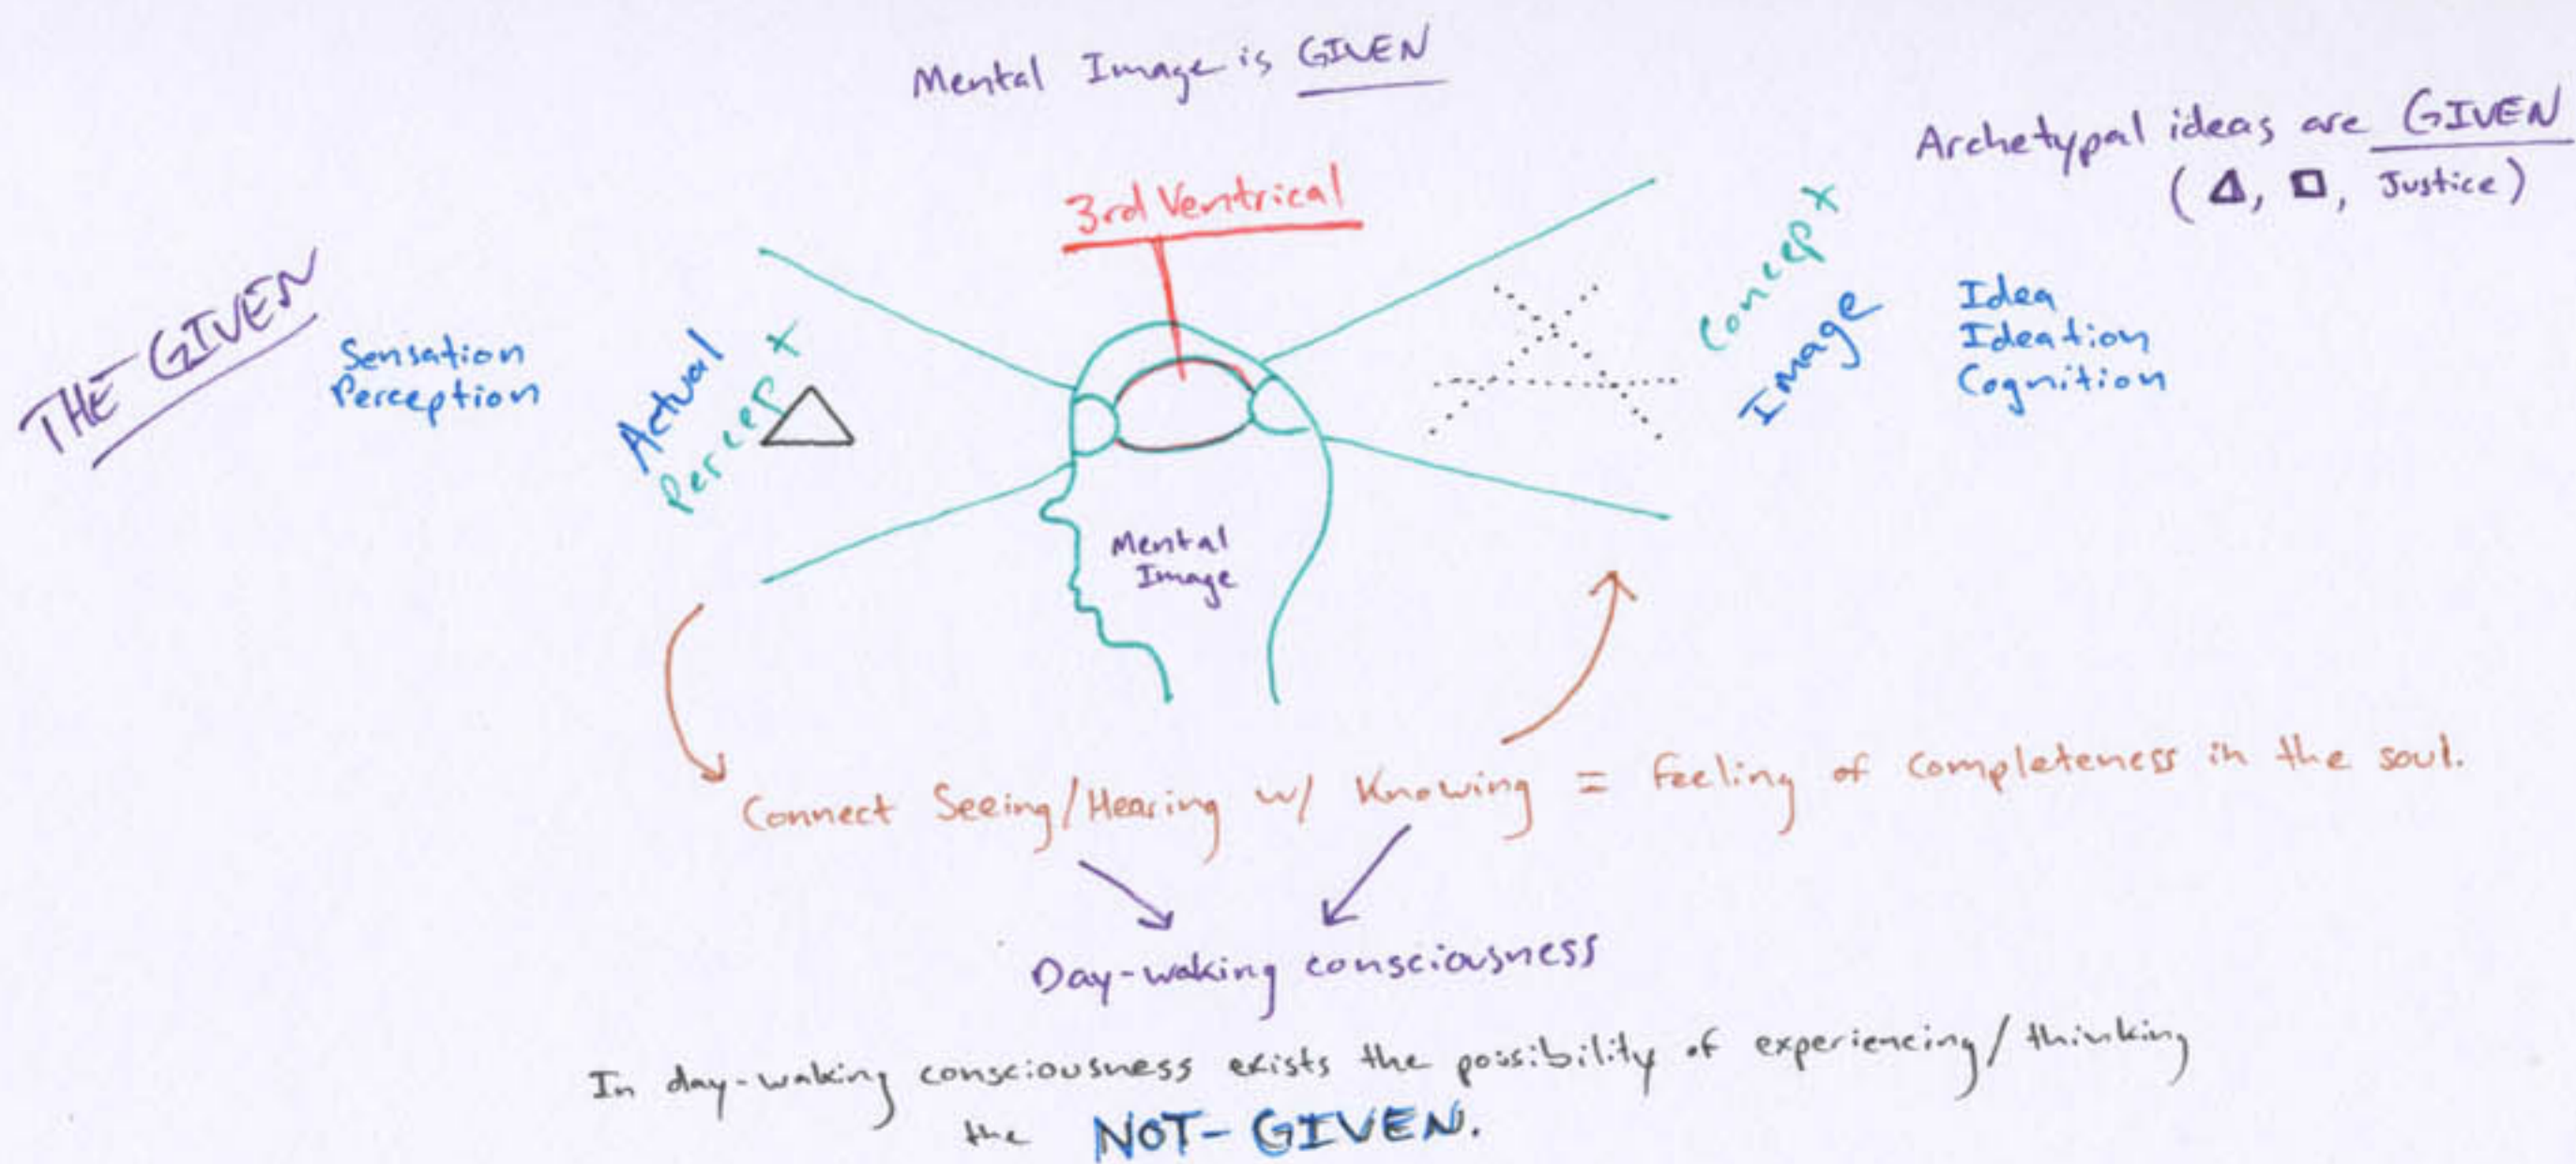 Mental Image is GIVEN
Archetypal ideas are GIVEN
(△, □, Justice)
3rd Ventrical
THE GIVEN
Sensation
Perception
Actual
Percept
Concept
Image
Idea
Ideation
Cognition
Mental
Image
Connect Seeing/Hearing w/ Knowing = feeling of completeness in the soul.
Day-waking consciousness
In day-waking consciousness exists the possibility of experiencing/thinking
the NOT-GIVEN.